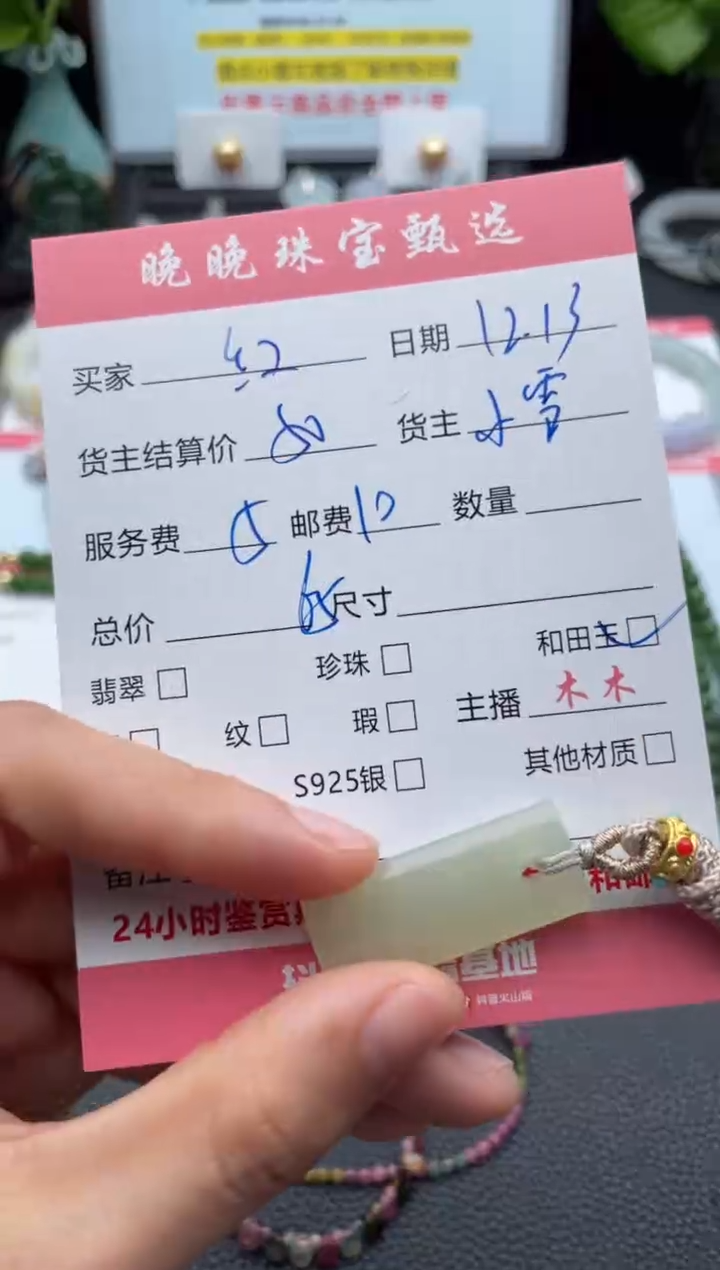 晚晚珠宝甄选
买家 红 日期 12.13
货主结算价 50 货主 小雪
服务费 5 邮费 10 数量
总价 65 尺寸
翡翠 珍珠 和田玉
纹 瑕 主播 木木
S925银 其他材质
备注
24小时鉴赏
基地
抖音火山版